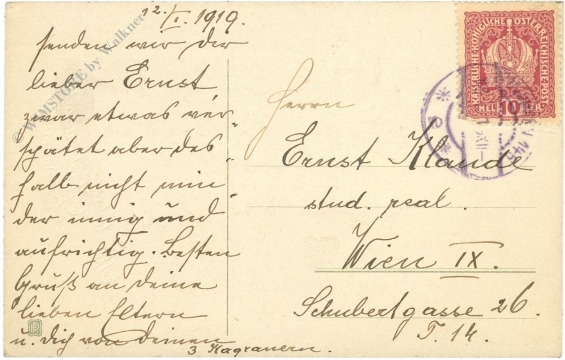 12./I. 1919.
senden wir dir
lieber Ernst
zwar etwas ver-
spätet aber des-
halb nicht min-
der innig und
aufrichtig. Besten
Gruß an deine
lieben Eltern
u. dich von deinen
3 Kagranern.
WIMSTORE by Walkner
KAISERLICHE KÖNIGLICHE ÖSTERREICHISCHE POST
HELLER 10
Herrn
Ernst Klaude
stud. real.
Wien IX.
Schubertgasse 26.
T. 14.